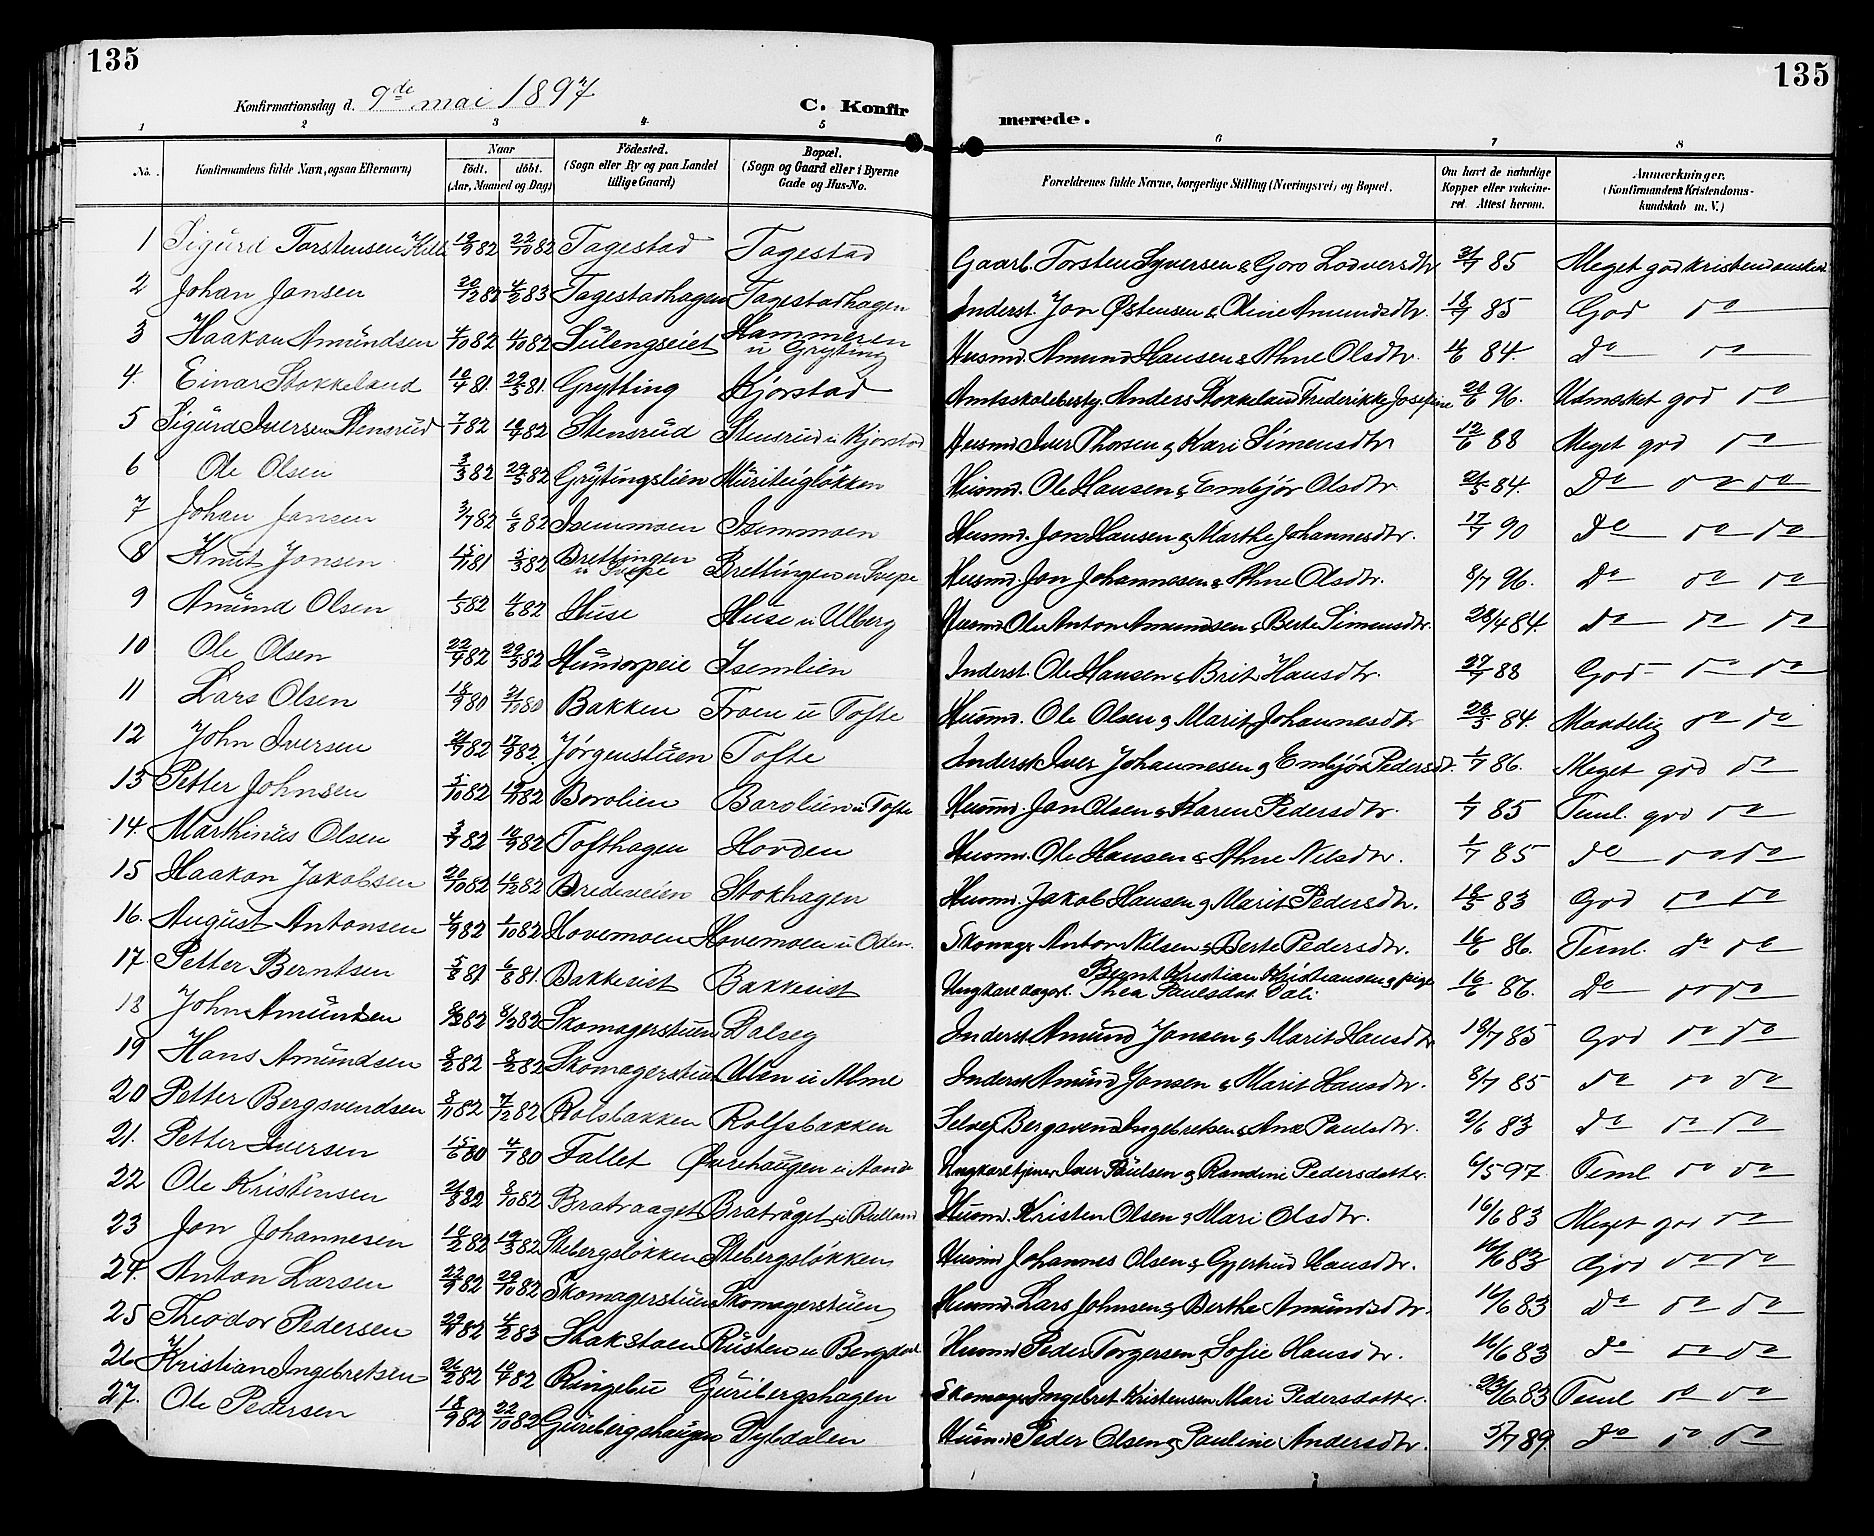 135
135
Konfirmationsdag d. 9de mai 1897
C. Konfirmerede.
1 2 3 4 5 6 7 8
No. Konfirmandens fulde Navn, ogsaa Efternavn) Naar födt. döbt. (Aar, Maaned og Dag) Födested. (Sogn eller By og paa Landet tillige Gaard) Bopæl. (Sogn og Gaard eller i Byerne Gade og Hus-No. Forældrenes fulde Navne, borgerlige Stilling (Næringsvei) og Bopæl. Om havt de naturlige Kopper eller vakcineret. Attest herom. Anmærkninger. (Konfirmandens Kristendomskundskab m. V.)
1 Sigurd Torstensen Kille 19/9 82 22/10 82 Tagestad Tagestad Gaarb. Torsten Syversen & Goro Lodversdtr 21/7 85 Meget god kristendomsk.
2 Johan Jansen 20/12 82 4/2 83 Tagestadhagen Tagestadhagen Inderst. Jon Østensen & Oline Amundsdtr. 18/7 85 God do
3 Haakon Amundsen 4/10 82 4/10 82 Sulengseiet Hammeren u Gryting Husmd. Amund Hansen & Ahne Olsdtr. 14/6 84. do do
4. Einar Stokkeland 10/4 81. 29/5 81. Grytting Kjorstad Amtsskolebesty. Anders Stokkeland Frederikke Josefine 20/6 96. Udmerket god do
5 Sigurd Iversen Stensrud 7/7 82 16/7 82 Stensrud Stensrud u Kjorstad Husmd Iver Thorsen & Kari Simensdtr 12/6 88 Meget god do
6 Ole Olsen 3/3 82 29/5 82 Grytingslien Muriteigløkken Husmd. Ole Hansen & Embjör Olsdtr. 21/5 84. Do do do
7 Johan Jansen 3/7 82 6/8 82 Isummoen Isummoen Husmd. Jon Hansen & Marthe Johannesdtr. 17/7 90 do do do
8 Knut Jonsen 15/11 81 5/3 82 Brettingen u Svepe Brettingen u Svepe Husmd. Jon Johannesen & Ahne Olsdtr. 8/7 96. Do do do
9 Amund Olsen 1/5 82 4/6 82 Huse Huse u Ulberg Husmd Ole Anton Amundsen & Berte Simensdtr. 28/4 84. do do do
10 Ole Olsen 22/4 82 29/5 82 Hundorpeie Isemlien Inderst. Ole Hansen & Brit Hansdtr. 27/7 88 God do do
11 Lars Olsen 18/9 80 31/10 80 Bakken Froen u Tofte Husmd. Ole Olsen & Marit Johannesdtr 28/3 84. Maadelig do do
12 John Iversen 21/7 82 17/9 82. Jörgenstuen Tofte Inderst Iver Johannesen & Embjör Pedersdt. 1/7 86. Meget god do
13 Petter Johnsen 5/10 82 19/11 82 Borolien Borolien u Tofte Husmd. Jon Olsen & Karen Pedersdtr. 1/7 85 Teml. god do
14. Marthinus Olsen 3/7 82 10/9 82 Tofthagen Horden Husmd. Ole Hansen & Ahne Nilsdtr. 1/7 85 do do do
15 Haakon Jakobsen 20/10 82 10/12 82 Bredeveien Stokhagen Husmd. Jakob Hansen & Marit Pedersdtr. 18/5 83 God do do
16. August Antonsen 4/9 82 1/10 82 Hovemoen Hovemoen u Oden. Skomag. Anton Nilsen & Berte Pedersdtr. 16/6 86. Teml. do do
17. Petter Berntsen 5/8 81 6/8 81. Bakkeeiet Bakkeeiet Ungkare dagarb. Bernt Kristian Kristiansen & pige Thea Paulsdat. Dali 16/6 86. Do do do
18 John Amundsen 8/2 82 8/2 82 Skomagerstuen Dalseg Inderst. Amund Jonsen & Marit Hansdtr 18/7 85 God do do
19 Hans Amundsen 8/2 82 8/2 82 Skomagerstuen Ulen u Alme Inderst Amund Jonsen & Marit Hansdtr. 8/7 85 do do do
20 Petter Bergsvendsen 8/11 82 7/12 82 Rolsbakken Rolfsbakken Selvej Bergsvend Ingebretsen & Ane Paulsdtr. 2/6 83 do do do
21. Petter Iversen 15/6 80 4/7 80 Fallet Øvrehaugen u Aande Ungkare tjener Iver Paulsen & Randine Pedersdatter. 6/5 97 Teml do do
22 Ole Kristensen 21/8 82 8/10 82 Bratraaget Bratråget u Rulland Husmd. Kristen Olsen & Mari Olsdtr. 16/6 83 Meget god do
23 Jon Johannesen 18/2 82 19/3 82 Stebergsløkken Stebergsløkken Husmd Johannes Olsen & Gjertrud Hansdtr. 16/6 83 God do do
24. Anton Larsen 22/9 82 29/10 82 Skomagerstuen Skomagerstuen Husmd. Lars Johnsen & Berthe Amundsdtr. 16/6 83 do do do
25 Theodor Pedersen 29/11 82 4/2 83 Stakstoen Rusten u Bergdal Husmd Peder Torgersen & Sofie Hansdtr. 16/6 83 do do do
26 Kristian Ingebretsen 26/2 82 10/4 82 Ringebu Guribergshagen Skomag. Ingebret Kristensen Mari Pedersdatter. 23/6 83 Teml do do
27. Ole Pedersen 18/9 82 22/10 82 Guribergshaugen Dybdalen Husmd Peder Olsen & Pauline Andersdtr. 5/7 89 do do do